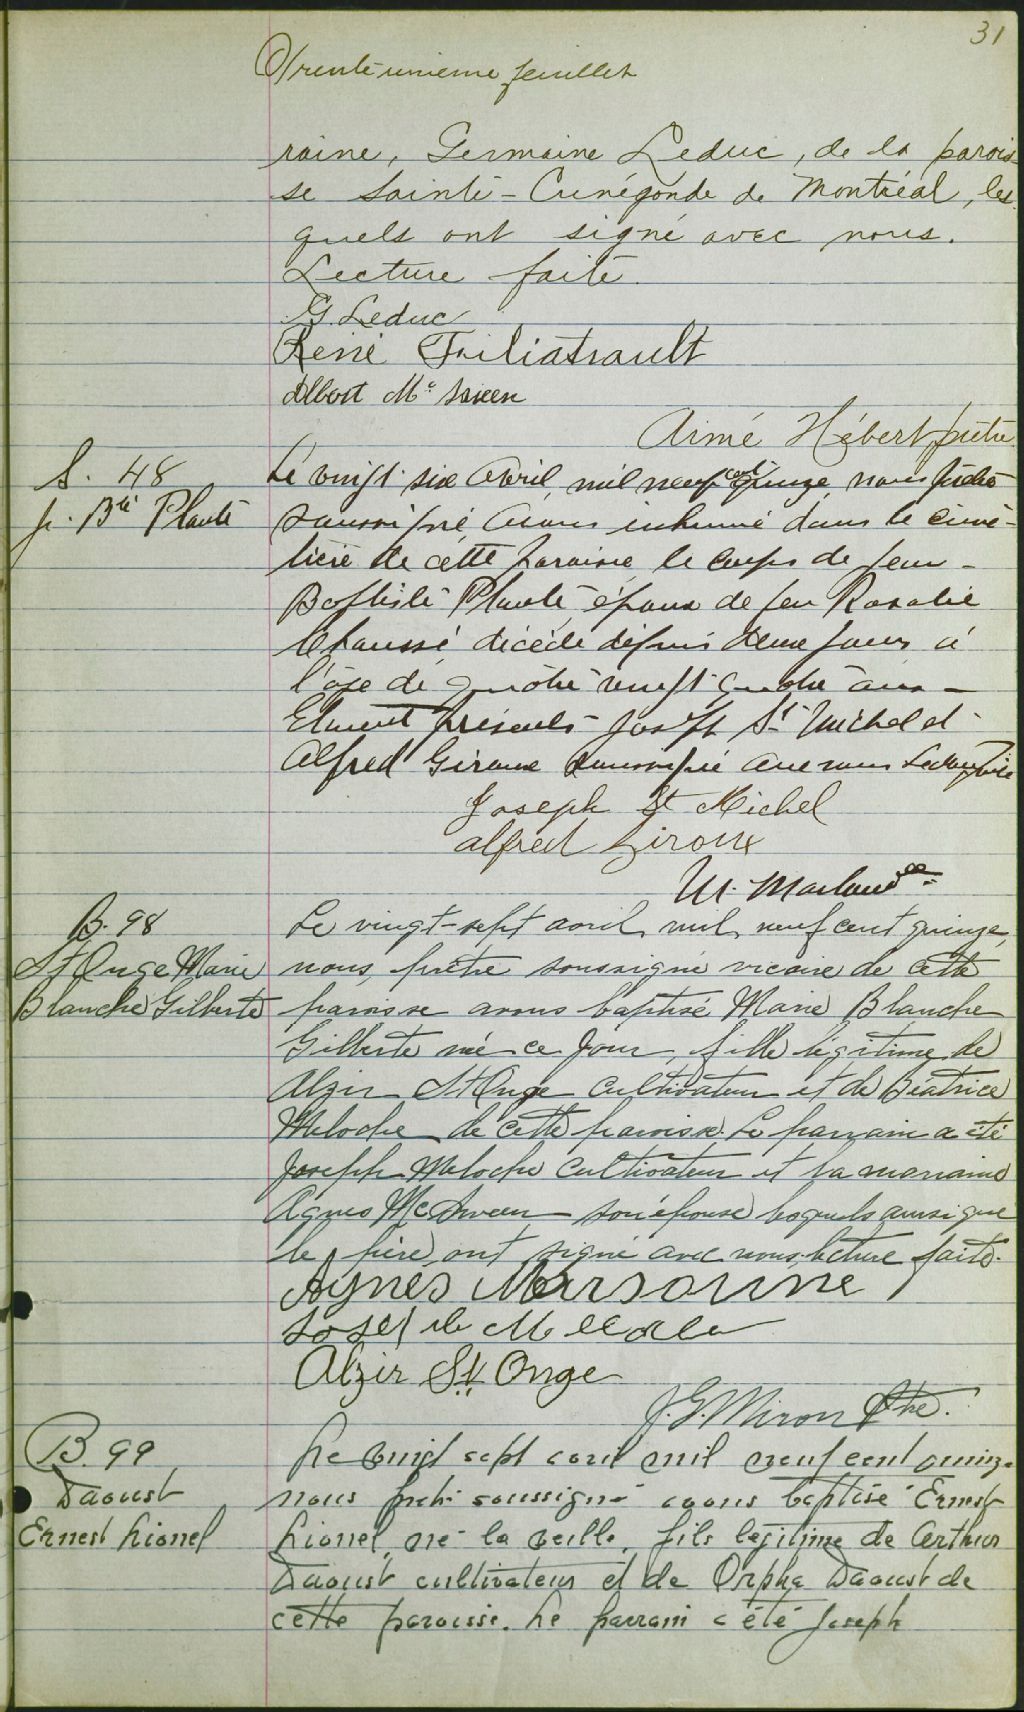 31
Trente-unième feuillet
raine, Germaine Leduc, de la parois-
se Sainte-Cunégonde de Montréal, les-
quels ont signé avec nous.
Lecture faite.
G. Leduc
René Filiatrault
Albert Mc
Aimé Hébert, prêtre
S. 48
J. Bte Plante
Le vingt six Avril, mil neuf cent quinze, nous prêtre
soussigné avons inhumé dans le cime-
tière de cette paroisse le corps de Jean-
Baptiste Plante époux de feu Rosalie
Chaussé décédé depuis deux jours à
l'âge de quatre vingt quatre ans -
Etaient présents Joseph St Michel et
Alfred Giroux soussignés avec nous Lecture faite
Joseph St Michel
Alfred Giroux
B. 98
St Onge Marie
Blanche Gilberte
Le vingt-sept avril mil neuf cent quinze,
nous, prêtre soussigné vicaire de cette
paroisse avons baptisé Marie Blanche
Gilberte né ce jour, fille légitime de
Alzir St Onge cultivateur et de Béatrice
Meloche de cette paroisse. Le parrain a été
Joseph Meloche cultivateur et la marraine
Agnes son épouse lesquels ainsi que
le père, ont signé avec nous. lecture faite.
Agnes
Alzir St. Onge
J. G. Miron Ptre.
B. 99
Daoust
Ernest Lionel
Le vingt sept avril mil neuf cent quinze
nous prêtre soussigné avons baptisé Ernest
Lionel, né la veille, fils légitime de Arthur
Daoust cultivateur et de Orpha Daoust de
cette paroisse. Le parrain a été Joseph